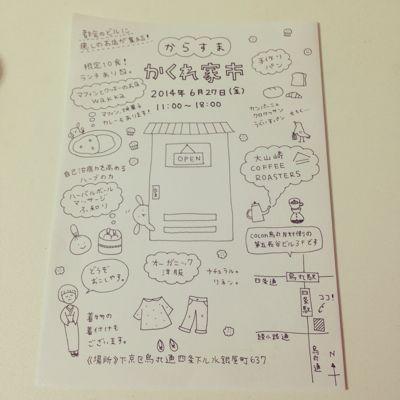 都会のビルに、
癒しのお店が集まる!
からすま
かくれ家市
2014年6月27日(金)
11:00〜18:00
限定10食!
ランチあり〼。
マフィンとクッキーのお店
wakka
マフィン、焼菓子
カレーもあります!
手作り
パン
カンパーニュ
クロワッサン
うぐいす豆パン
OPEN
大山崎
COFFEE
ROASTERS
自己治癒力を高める
ハーブの力
ハーバルボール
マッサージ
ふ和り
cocon烏丸
第五長谷ビル3Fです
どうぞ
おこしやす。
オーガニック
洋服
ナチュラル
リネン。
着物の
着付けも
ございます。
四条通
烏丸駅
四条駅
ココ!
綾小路通
烏丸通
N
《場所》下京区烏丸通四条下ル水銀屋町637